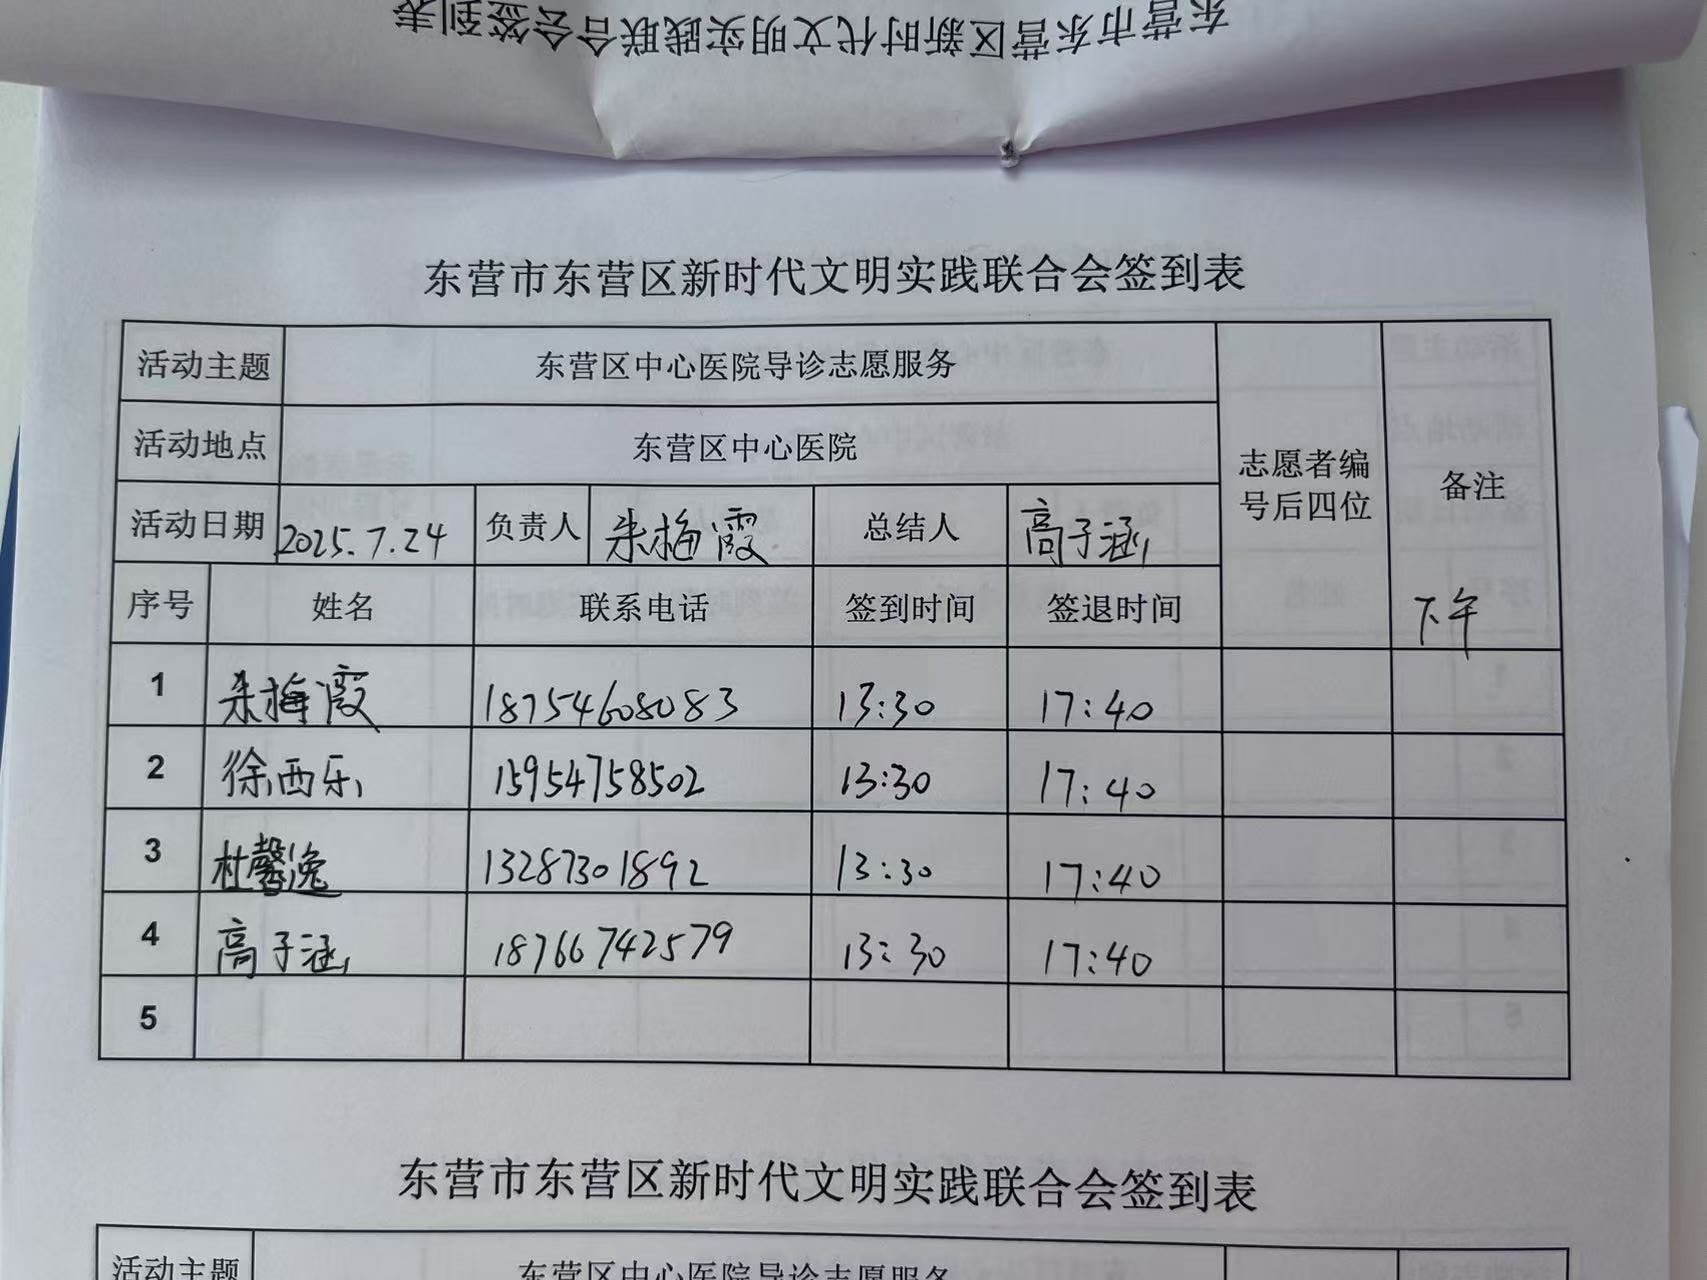 东营市东营区新时代文明实践联合会签到表
东营市东营区新时代文明实践联合会签到表
活动主题 东营区中心医院导诊志愿服务 志愿者编号后四位 备注
活动地点 东营区中心医院
活动日期 2025.7.24 负责人 朱梅霞 总结人 高子涵
序号 姓名 联系电话 签到时间 签退时间 下午
1 朱梅霞 18754608083 13:30 17:40
2 徐西乐 15954758502 13:30 17:40
3 杜馨逸 13287301892 13:30 17:40
4 高子涵 18766742579 13:30 17:40
5
东营市东营区新时代文明实践联合会签到表
活动主题 东营区中心医院导诊志愿服务